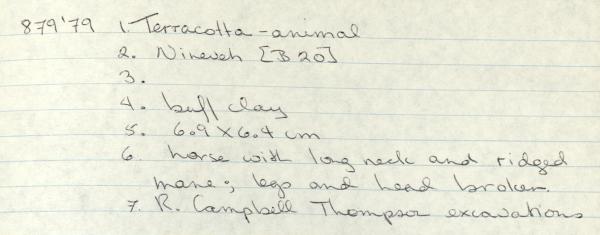 879'79 1. Terracotta - animal
2. Nineveh [B 20]
3.
4. buff clay
5. 6.9 x 6.4 cm
6. horse with long neck and ridged
mane; legs and head broken.
7. R. Campbell Thompson excavations